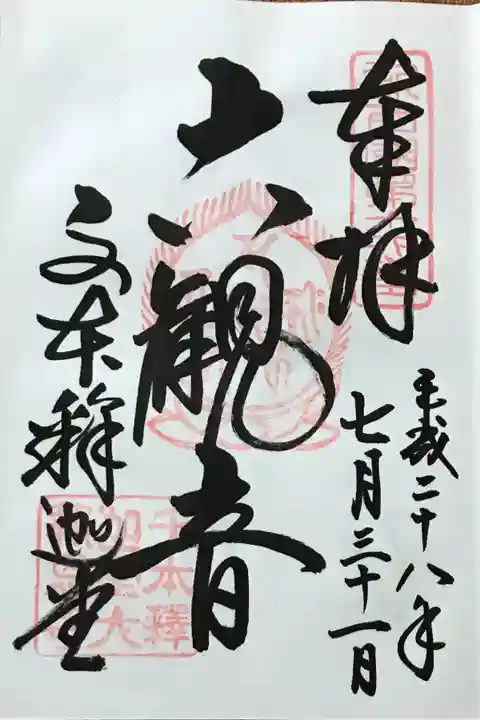 奉拝
平成二十八年
七月三十一日
六観音
千本釋迦堂
千本釋